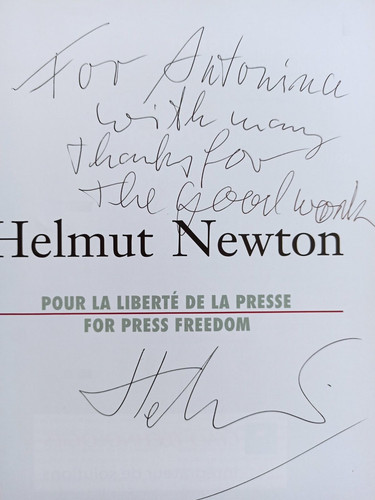 For Antonina
with many
thanks for
the good work
Helmut Newton
POUR LA LIBERTÉ DE LA PRESSE
FOR PRESS FREEDOM
Helmut